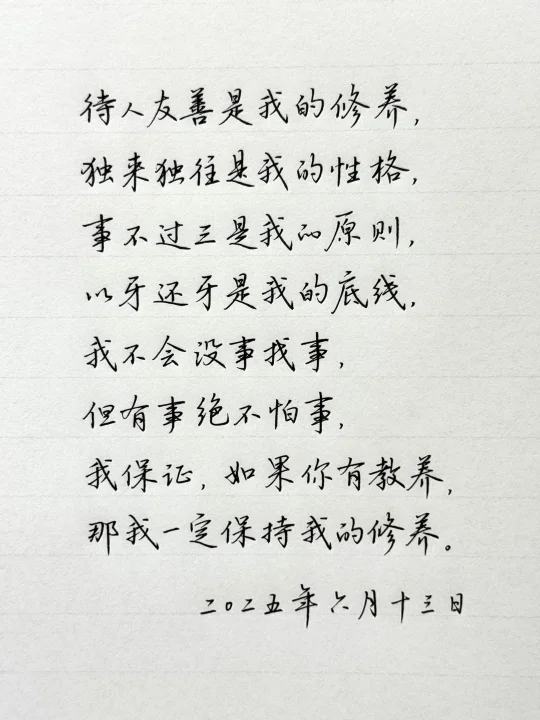 待人友善是我的修养,
独来独往是我的性格,
事不过三是我的原则,
以牙还牙是我的底线,
我不会没事找事,
但有事绝不怕事,
我保证,如果你有教养,
那我一定保持我的修养。
二〇二五年六月十三日